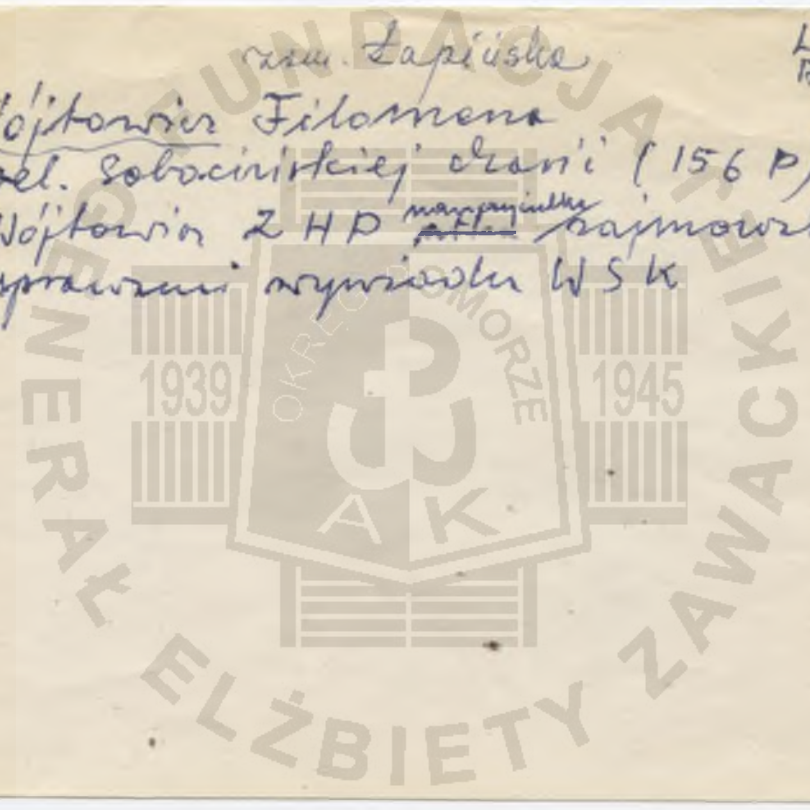 zam. Łapińska
ójtowicz Filomena
el. Sobocińskiej Marii (156 P)
ójtowicz ZHP nauczycielka zajmow
sprawami wywiadu WSK
FUNDACJA
GENERAŁ ELŻBIETY ZAWACKIEJ
OKRĘG POMORZE
1939
1945
AK